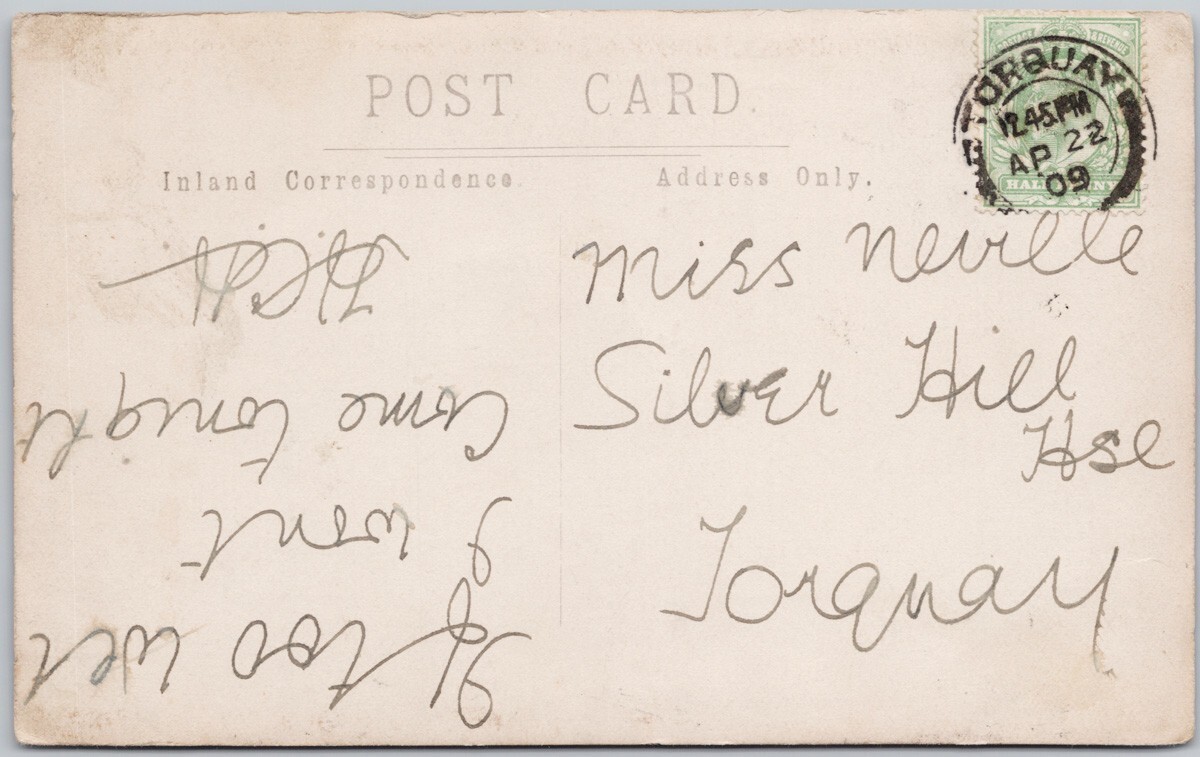 POST CARD.
Inland Correspondence.
Address Only.
TORQUAY
12.45PM
AP 22
09
HALF PENNY
Miss Neville
Silver Hill
Hse
Torquay
If too wet
I wont
Come tonight